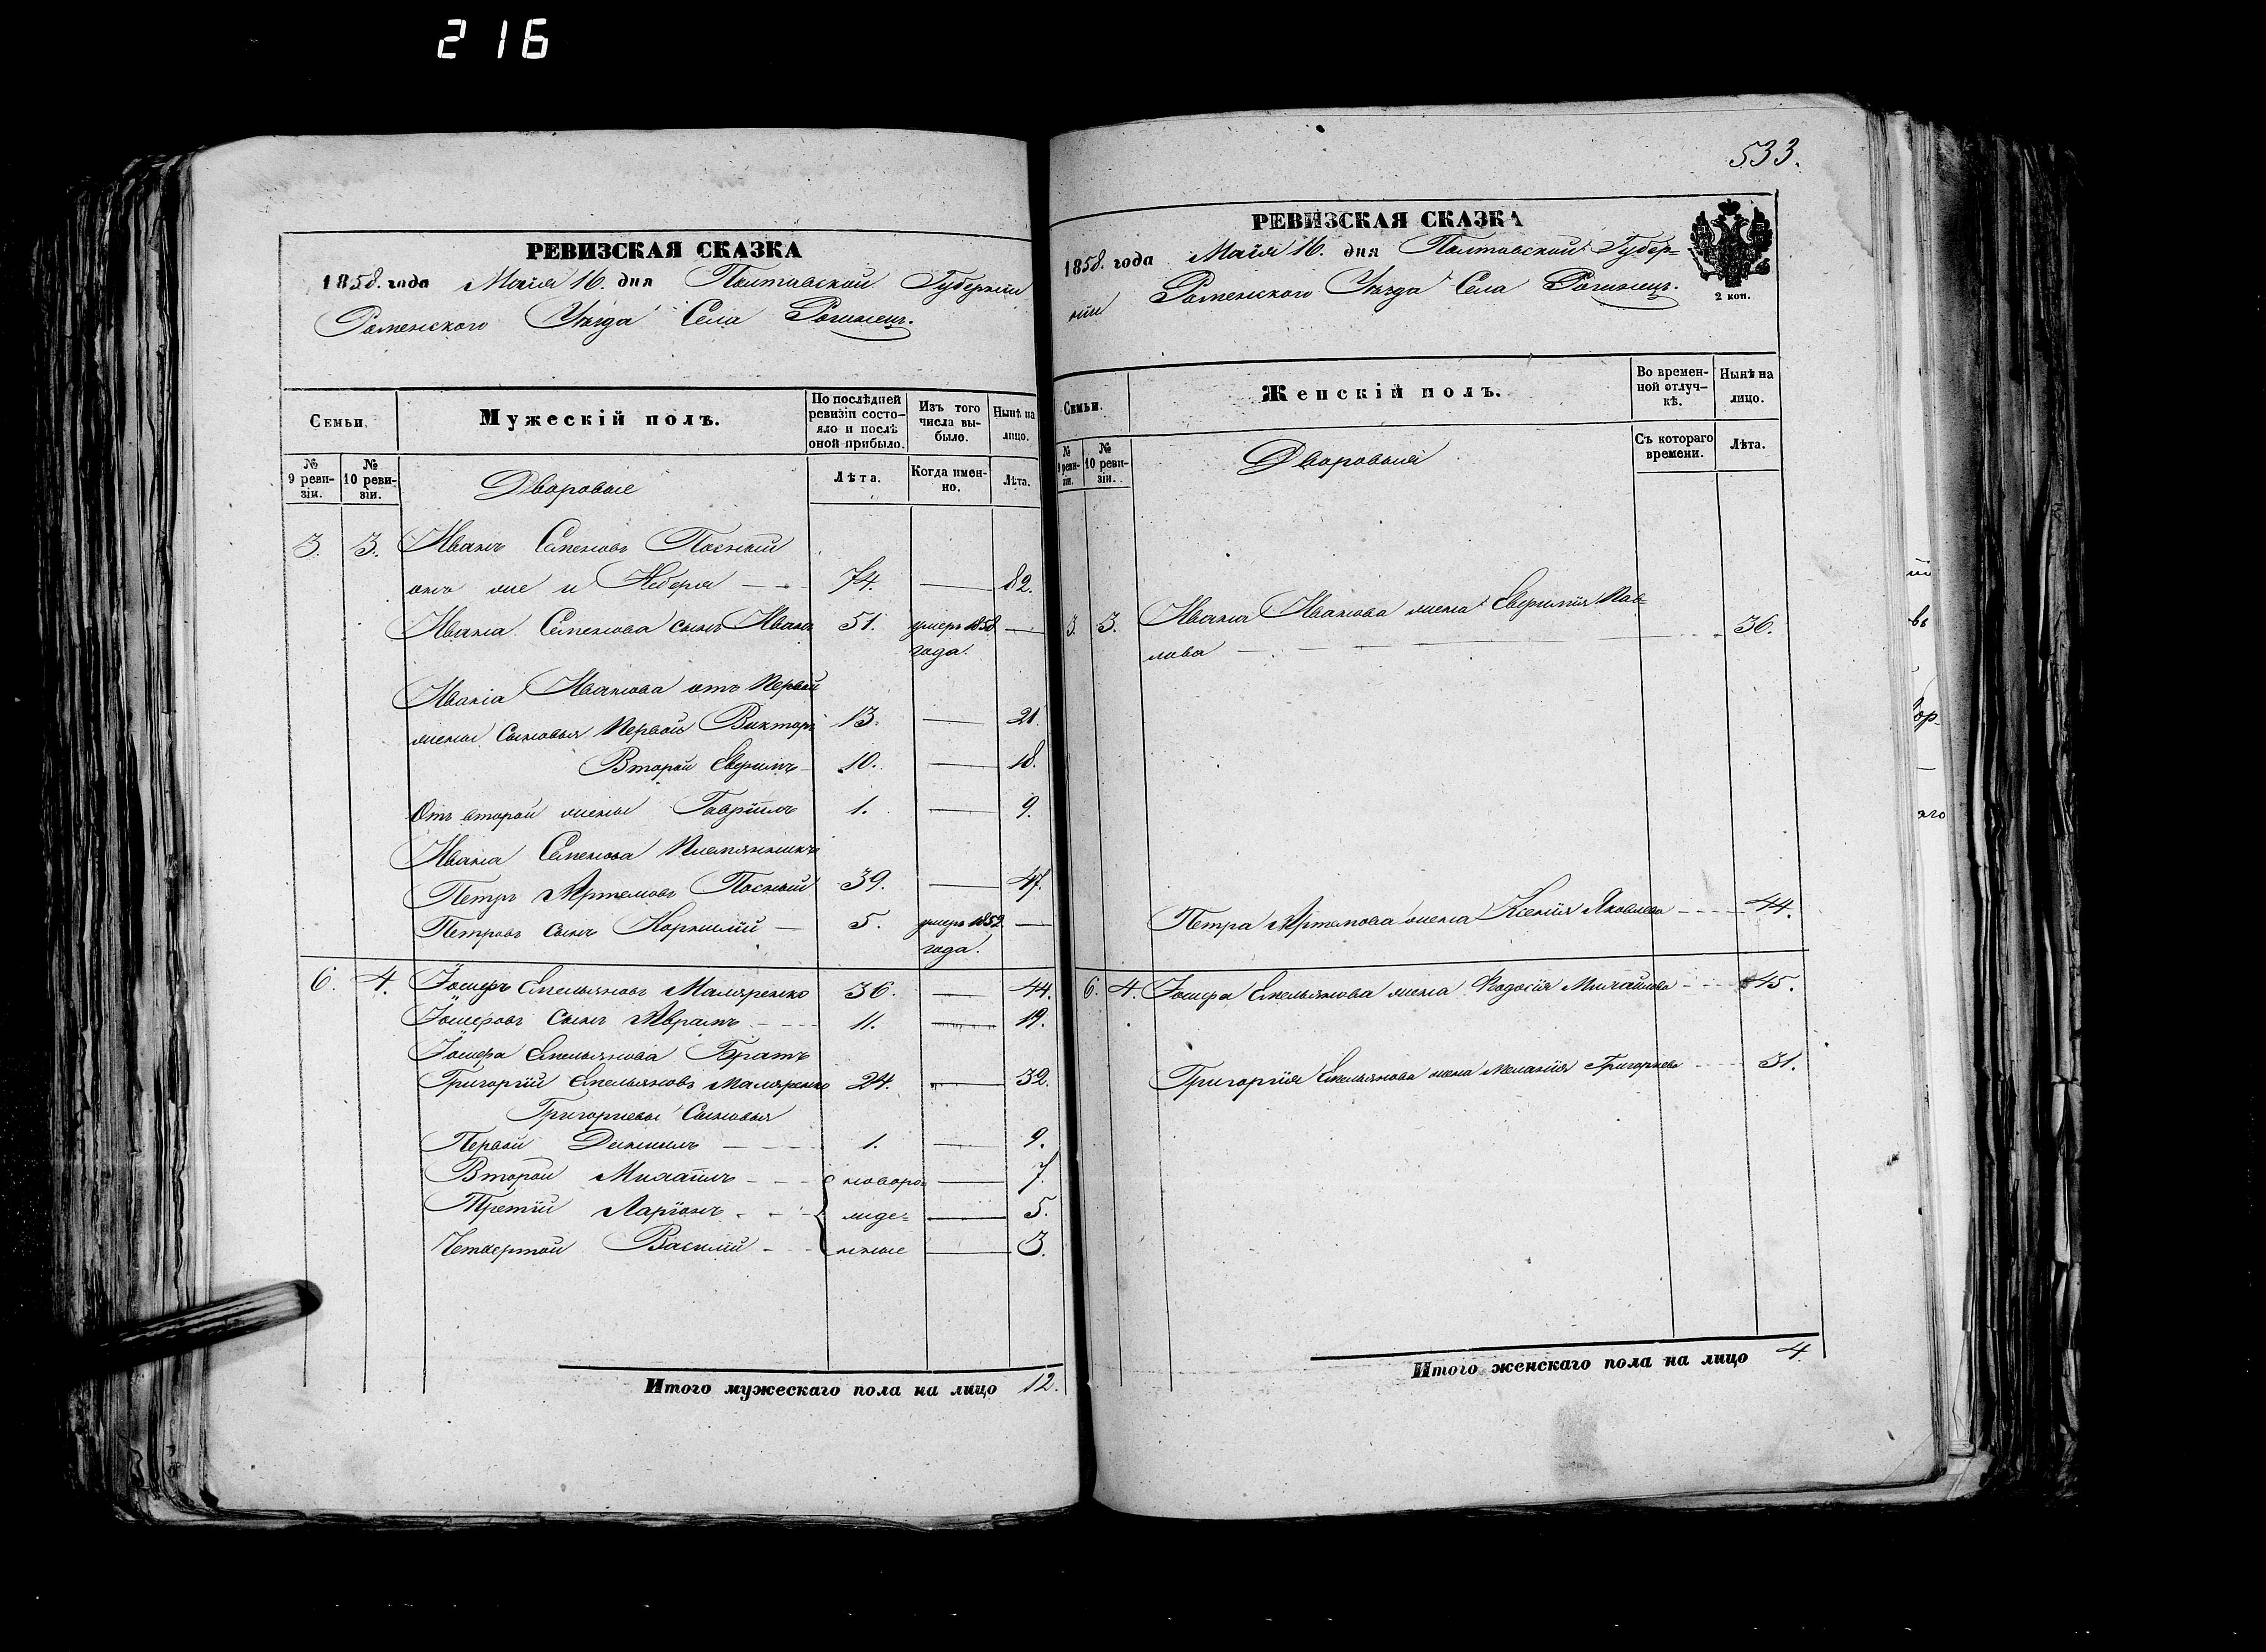 216
РЕВИЗСКАЯ СКАЗКА
1858. года Маія 16. дня Полтавской Губерніи
Роменского Уѣзда Села Рогинец.
Семьи.
Мужескій полъ.
По послѣдней ревизіи состо-
яло и послѣ
оной прибыло.
Изъ того
числа вы-
было.
Нынѣ на
лицо.
№
9 реви-
зіи.
№
10 реви-
зіи.
Дворовые
Лѣта.
Когда имен-
но.
Лѣта.
3. 3. Иванъ Семеновъ Посный
онъ же и Неберя — 74. — 82.
Ивана Семенова сынъ Иванъ 51. умеръ 1858 —
года.
Ивана Иванова отъ первой
жены сыновья первой Викторъ 13. — 21.
Второй Евфимъ 10. — 18.
Отъ второй жены Гавріилъ 1. — 9.
Ивана Семенова племянникъ
Петръ Артемовъ Посный 39. — 47.
Петровъ сынъ Корнилій — 5. умеръ 1852 —
года.
6. 4. Іосифъ Емельяновъ Маляренко 36. — 44.
Іосифовъ сынъ Аврамъ 11. — 19.
Іосифа Емельянова Братъ
Григорій Емельяновъ Маляренко 24. — 32.
Григориевы Сыновья
Первой Даниилъ — 1. — 9.
Второй Михаилъ — новоро- — 7.
Третій Ларіонъ — жде= — 5.
Четвертой Василій — нные — 3.
Итого мужескаго пола на лицо 12.
533.
РЕВИЗСКАЯ СКАЗКА
1858. года Маія 16. дня Полтавской Губер=
ніи Роменского Уѣзда Села Рогинец.
2 коп.
Семьи.
Женскій полъ.
Во времен-
ной отлуч-
кѣ.
Нынѣ на
лицо.
№
9 реви-
зіи.
№
10 реви-
зіи.
Дворовыя
Съ котораго
времени.
Лѣта.
3. 3. Ивана Иванова жена Евфимія Пав=
лова — 36.
Петра Артемова жена Ксенія Яковлева — 44.
6. 4. Іосифа Емельянова жена Феодосія Михайлова — 45.
Григорія Емельянова жена Меланія Григорьева — 31.
Итого женскаго пола на лицо 4.